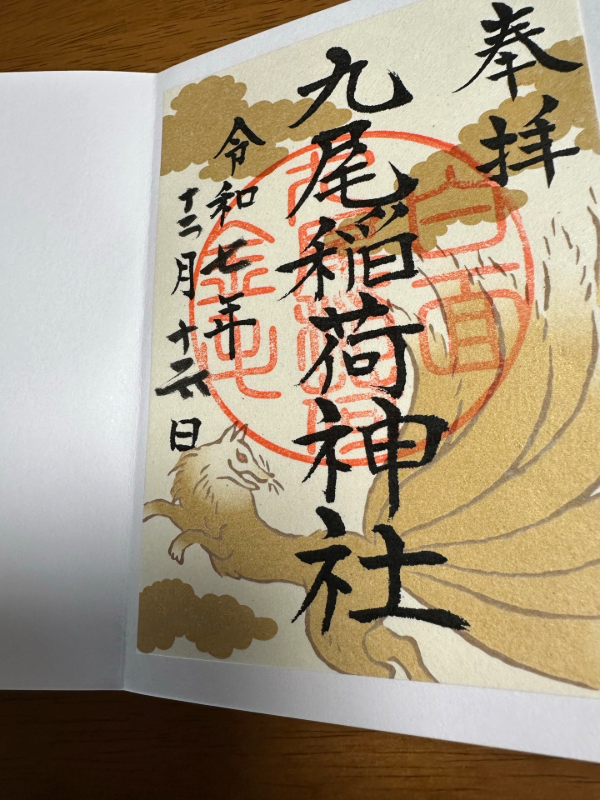 奉拝
白面
九尾稲荷神社
金毛
令和七年
十二月十六日